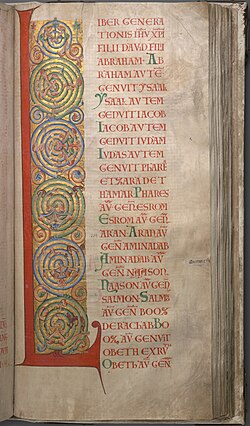 LIBER GENERA
TIONIS IHV XPI
FILII DAVID FILII
ABRAHAM· AB
RAHAM AUTE
GENVIT YSAAC
YSAAC AVTEM
GENVIT IACOB
IACOB AVTEM
GENVIT IVDAM
IVDAS AVTEM
GENVIT PHARE
ET ZARA DE T
HAMAR PHARES
AV GEN ESROM
ESROM AV GEN
ARAN· ARAN AV
GEN AMINADAB
AMINADAB AV
GEN NAASON
NAASON AV GEN
SALMON· SALMON
AV GEN BOOZ
DE RACHAB· BO
OZ AV GENVIT
OBETH EX RV
OBETH AV GEN